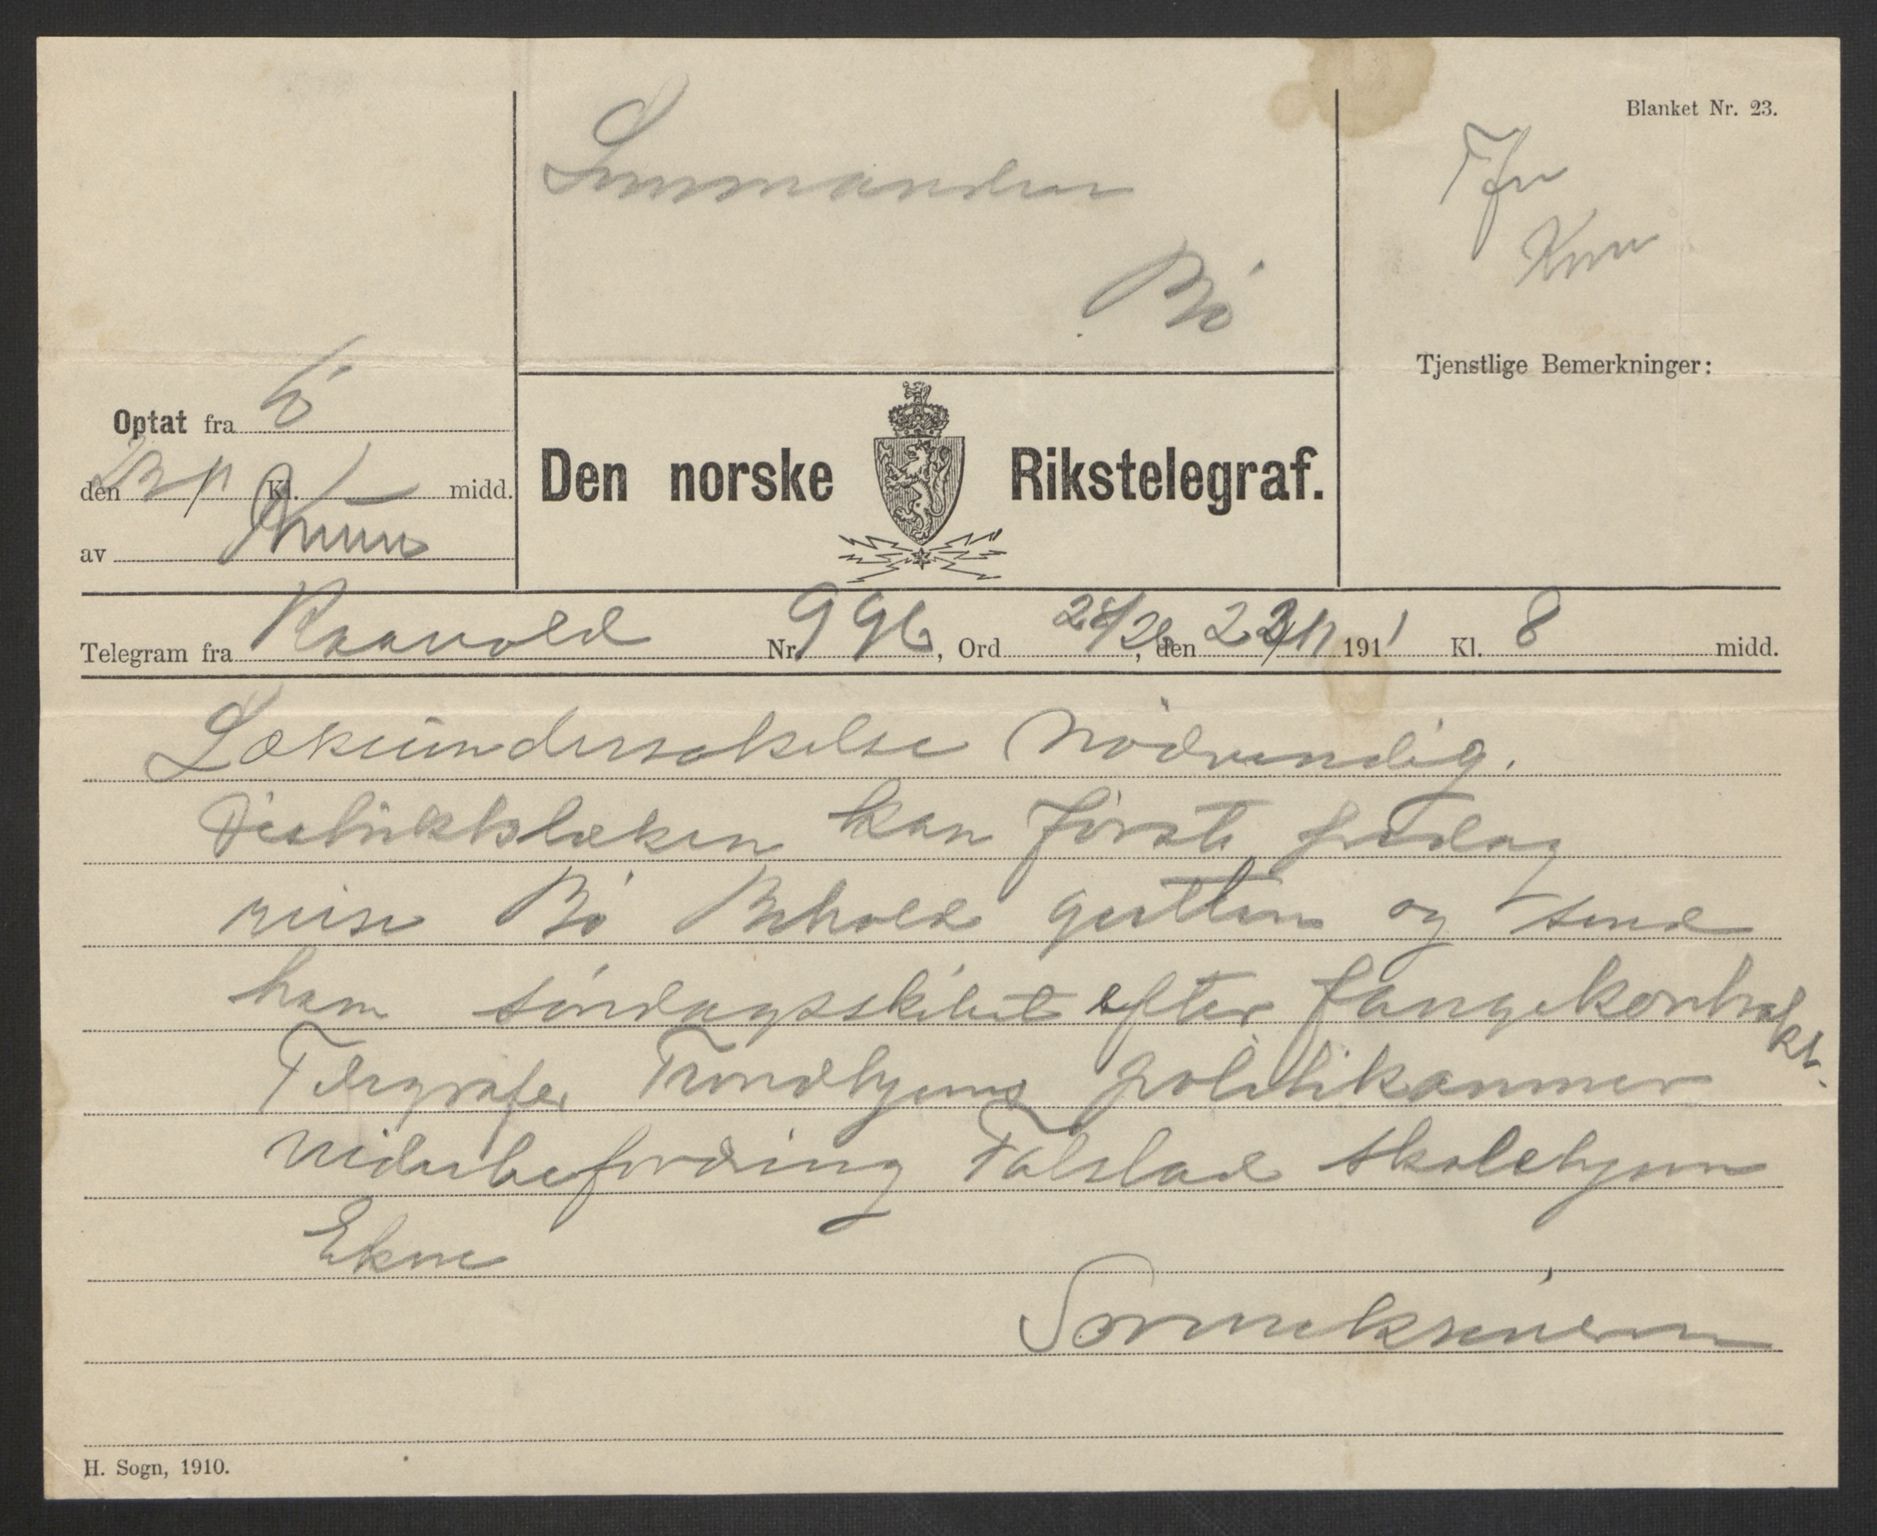 Blanket Nr. 23.
Lensmanden
Bö
Tjenstlige Bemerkninger:
Optat fra
den 23/11 Kl. midd.
av
Den norske Rikstelegraf.
Telegram fra Kaavold Nr. 996, Ord 28/26, den 22/11 1911 Kl. 8 midd.
Lækeundersøkelse nödvendig.
Distriktslæken kan förste fredag
reise Bö Behold gutten og send
ham söndagsskibet efter fangekontrakt.
Telegrafer Trondhjems politikammer
viderbefordring Falstad skolehjem
Ekne
Sorenskriveren
H. Sogn, 1910.